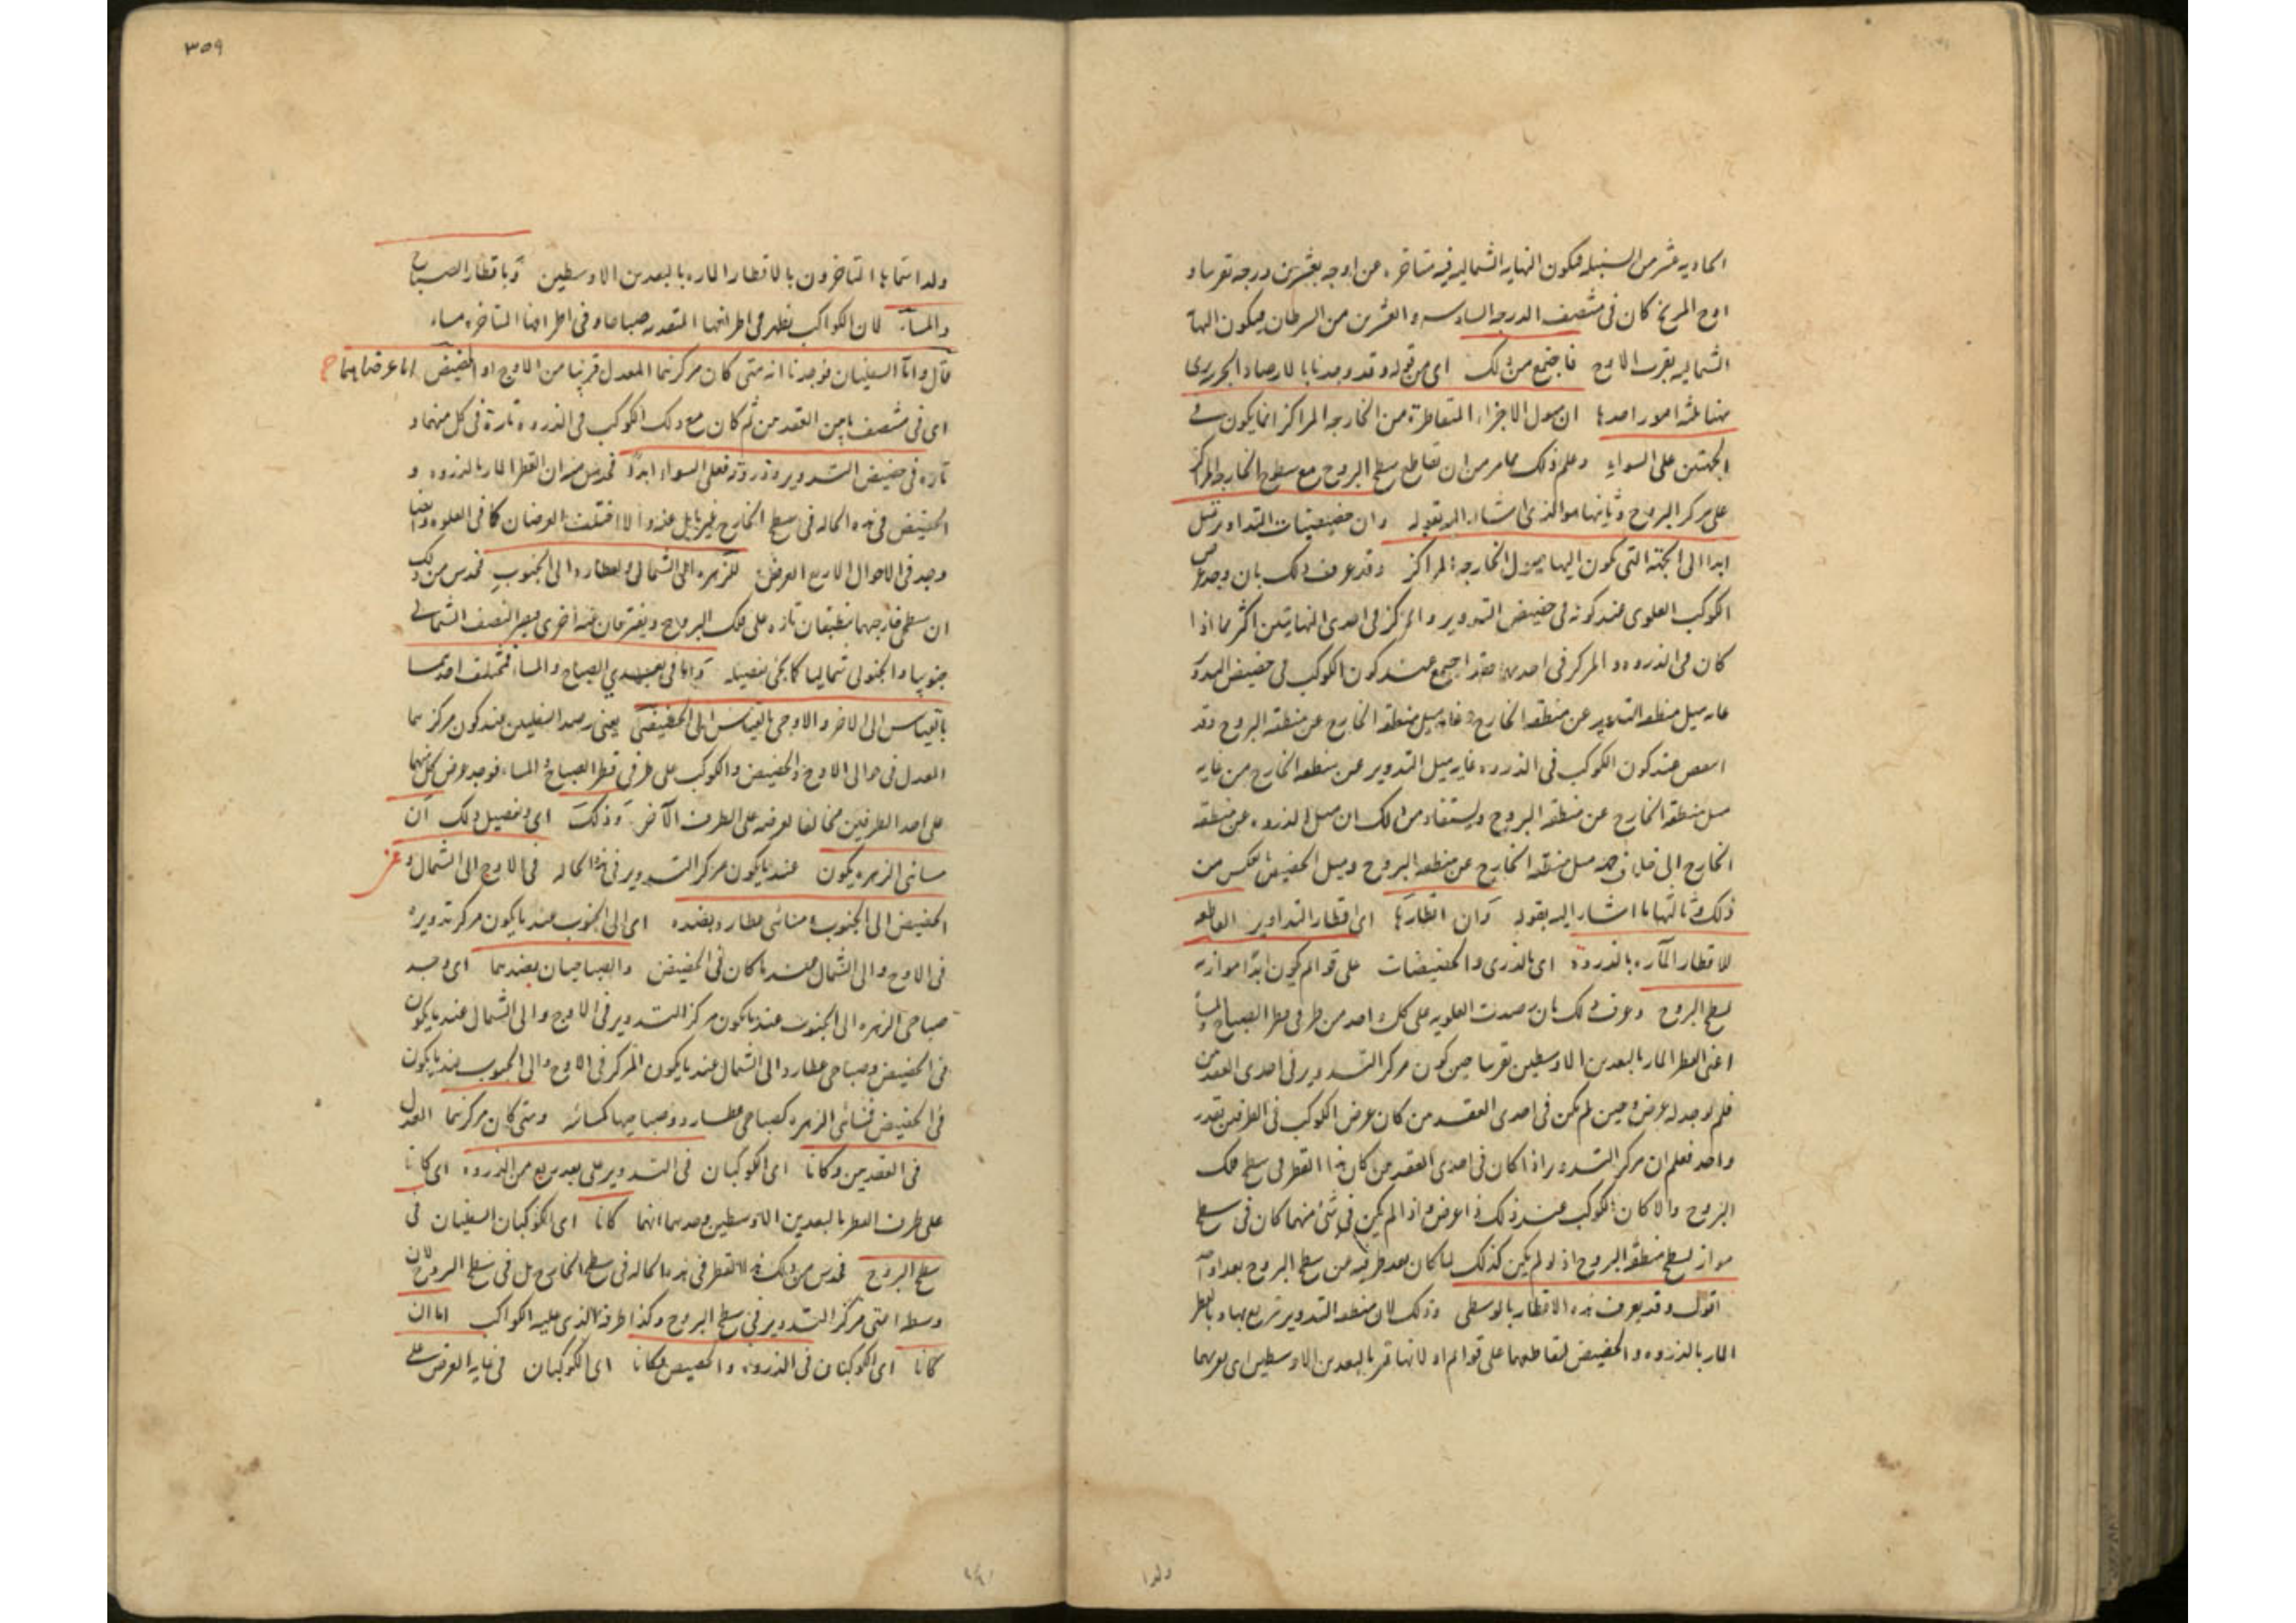 الحاديه عشر من السنبله فيكون النهايه الشماليه فيه متاخره عن اوجه بعشرين درجه تقريبا و
اوج المريخ كان فى منتصف الدرجه السادسه و العشرين من السرطان فيكون النهايه
الشماليه بقرب الاوج فاجتمع من ذلك اى من قوله وقد وجدنا بالارصاد الجزويه
منها ثلثه امور احدها ان ميول الاجزاء المتقاطرة من الخارجه المراكز انما يكون فى
الجهتين على السواء وعلم ذلك مما مر من ان تقاطع سطح البروج مع سطوح الخارجه المراكز
على مركز البروج وثانيها هو الذى اشار اليه بقوله وان حضيضيات التداوير تميل
ابدا الى الجهة التى تكون اليها ميول الخارجه المراكز وقد عرف ذلك بان وجد عرض
الكوكب العلوى عند كونه فى حضيض التدوير و المركز فى احدى النهايتين اكثر مما اذا
كان فى الذروه و المركز فى احديهما فقد اجتمع عند كون الكوكب فى حضيض التدوير
غايه ميل منطقه التدوير عن منطقه الخارج و غايه ميل منطقه الخارج عن منطقه البروج وقد
انتقص عند كون الكوكب فى الذروه غايه ميل التدوير عن منطقه الخارج من غايه
ميل منطقه الخارج عن منطقه البروج ويستفاد من ذلك ان ميل الذروه عن منطقه
الخارج الى خلاف جهة ميل منطقه الخارج عن منطقه البروج وميل الحضيض بعكس من
ذلك وثالثها ما اشار اليه بقوله وان اقطارها اى اقطار التداوير القاطعه
للاقطار المآره بالذروة اى بالذرى والحضيضات على قوائم تكون ابدا موازيه
لسطح البروج وعرف ذلك بان رصدت العلويه على كل واحد من طرفى قطر الصباح والمساء
اعنى القطر المار بالبعدين الاوسطين تقريبا حين كون مركز التدوير فى احدى العقدتين
فلم يوجد له عرض وحين لم يكن فى احدى العقدتين كان عرض الكوكب فى الطرفين بقدر
واحد فعلم ان مركز التدوير اذا كان فى احدى العقدتين كان هذا القطر فى سطح فلك
البروج والا كان الكوكب عند ذلك ذا عرض و اذا لم يكن فى شئ منهما كان فى سطح
مواز لسطح منطقه البروج اذ لو لم يكن كذلك لما كان بعد طرفيه من سطح البروج بعدا واحدا
اقول وقد يعرف هذه الاقطار بالوسطى وذلك لان منطقه التدوير تتربع بها و بالقطر
المار بالذروه و الحضيض لتقاطعهما على قوائم او لانها تمر بالبعدين الاوسطين اى بقربهما
ولذا
٣٥٩
ولذا سماها المتاخرون بالاقطار الماره بالبعدين الاوسطين وباقطار الصباح
والمساء لان الكواكب تظهر فى اطرافها المتقدمه صباحا و فى اطرافها المتاخره مساء
قال واما السفليان فوجدنا انه متى كان مركزهما المعدل قريبا من الاوج او الحضيض اما عرضاهما
اى فى منتصف ما بين العقدتين ثم كان مع ذلك الكوكب فى الذروه تارة فى كل منهما و
تاره فى حضيض التدوير وذروته فعلى السواء ابدًا فحدس من ان القطر المار بالذروه و
الحضيض فى هذه الحاله فى سطح الخارج غير مايل عنه والا اختلف العرضان كما فى العلويه وايضا
وجد فى الاحوال الاربع العرض للزهره الى الشمال ولعطارد الى الجنوب فحدس من ذلك
ان سطحى خارجهما ينطبقان تاره على فلك البروج ويفترقان عنه اخرى فيصير النصف الشمالى
جنوبيا والجنوبى شماليا كما يجئ تفصيله واما فى بعدى الصباح والمساء فتختلف احديهما
بالقياس الى الاخر و الاوجى بالقياس الى الحضيضى يعنى رصد السفليين عند كون مركزهما
المعدل فى حوالى الاوج والحضيض والكوكب على طرفى قطر الصباح والمساء فوجد عرض كل منهما
على احد الطرفين مخالفا لعرضه على الطرف الآخر وذلك اى وتفصيل ذلك ان
مسائى الزهره يكون عند ما يكون مركز التدوير فى هذه الحاله فى الاوج الى الشمال و عن
الحضيض الى الجنوب و مسائى عطارد بضده اى الى الجنوب عند ما يكون مركز تدويره
فى الاوج والى الشمال عند ما كان فى الحضيض والصباحيان بضدهما اى وجد
صباحى الزهره الى الجنوب عند ما يكون مركز التدوير فى الاوج والى الشمال عند ما يكون
فى الحضيض وصباحى عطارد الى الشمال عند ما يكون المركز فى الاوج والى الجنوب عند ما يكون
فى الحضيض فمسائى الزهره كصباحى عطارد وصباحيها كمسائه ومتى كان مركزهما المعدل
فى العقدتين وكانا اى الكوكبان فى التدوير على بعد ربع من الذروه اى كانا
على طرف القطر بالبعدين الاوسطين وجدهما انهما كانا اى الكوكبان السفليان فى
سطح البروج فحدس من ذلك ان القطر فى هذه الحاله فى سطح الخارج بل فى سطح البروج لان
وسطه اعنى مركز التدوير فى سطح البروج وكذا طرفه الذى عليه الكواكب اما ان
كانا اى الكوكبان فى الذروه والحضيض فكانا اى الكوكبان فى غايه العرض على